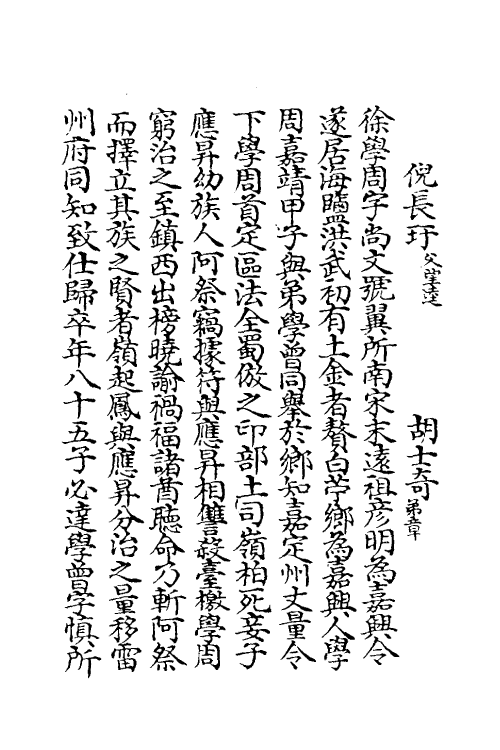 倪長玗父望達 胡士奇弟章
徐學周字尚文號翼所南宋末遠祖彦明為嘉興令
遂居海鹽洪武初有土金者贅白苧鄉為嘉興人學
周嘉靖甲子與弟學曾同舉於鄉知嘉定州丈量令
下學周首定區法全蜀倣之印部土司嶺柏死妾子
應昇幼族人阿祭竊據符與應昇相讐殺臺檄學周
窮治之至鎮西出榜曉諭禍福諸酋聽命乃斬阿祭
而擇立其族之賢者嶺起鳳與應昇分治之量移雷
州府同知致仕歸卒年八十五子必達學曾字慎所